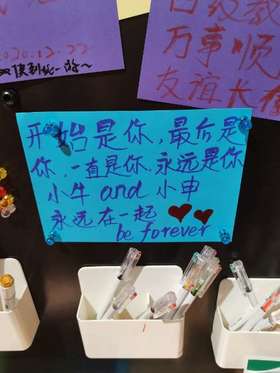 2020.12.22
万事顺
友谊长
开始是你，最后是
你，一直是你，永远是你
小牛 and 小申
永远在一起
be forever